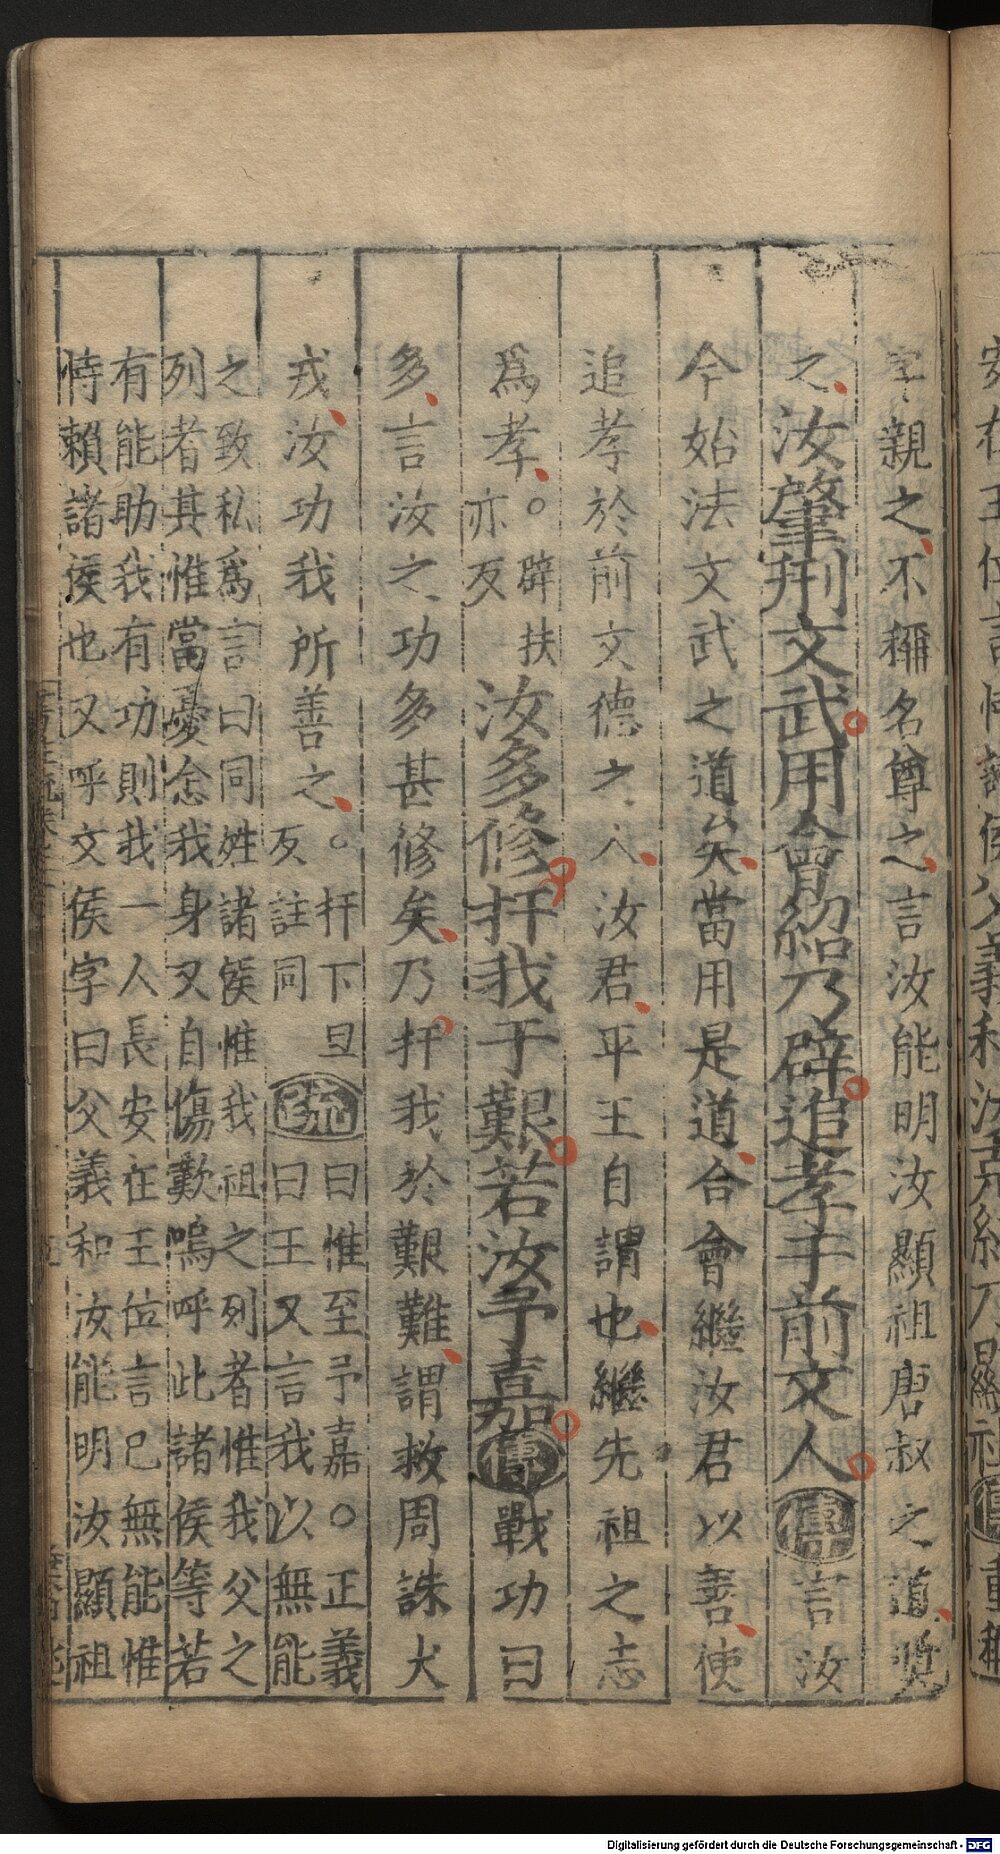 字親之不稱名尊之言汝能明汝顯祖唐叔之道奬
之汝肇刑文武用會紹乃辟追孝于前文人傳言汝
今始法文武之道矣當用是道合會繼汝君以善使
追孝於前文德之人汝君平王自謂也繼先祖之志
爲孝○辟扶
亦反
汝多修扞我于艱若汝予嘉傳戰功曰
多言汝之功多甚修矣乃扞我於艱難謂救周誅犬
戎汝功我所善之○扞下旦
反註同
疏曰惟至予嘉○正義
曰王又言我以無能
之致私爲言曰同姓諸侯惟我祖之列者惟我父之
列者其惟當憂念我身又自傷歎嗚呼此諸侯等若
有能助我有功則我一人長安在王位言已無能惟
恃賴諸侯也又呼文侯字曰父義和汝能明汝顯祖
Digitalisierung gefördert durch die Deutsche Forschungsgemeinschaft - DFG